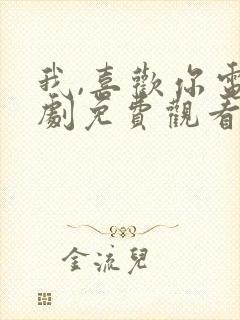 我,喜歡你電
劇免費觀看
金流兒